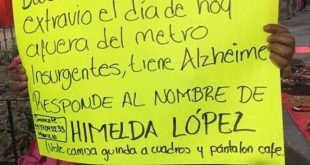 extravio el día de hoy
afuera del metro
Insurgentes, tiene Alzheimer
RESPONDE AL NOMBRE DE
HIMELDA LÓPEZ
Viste camisa guinda a cuadros y pántalon cafe.